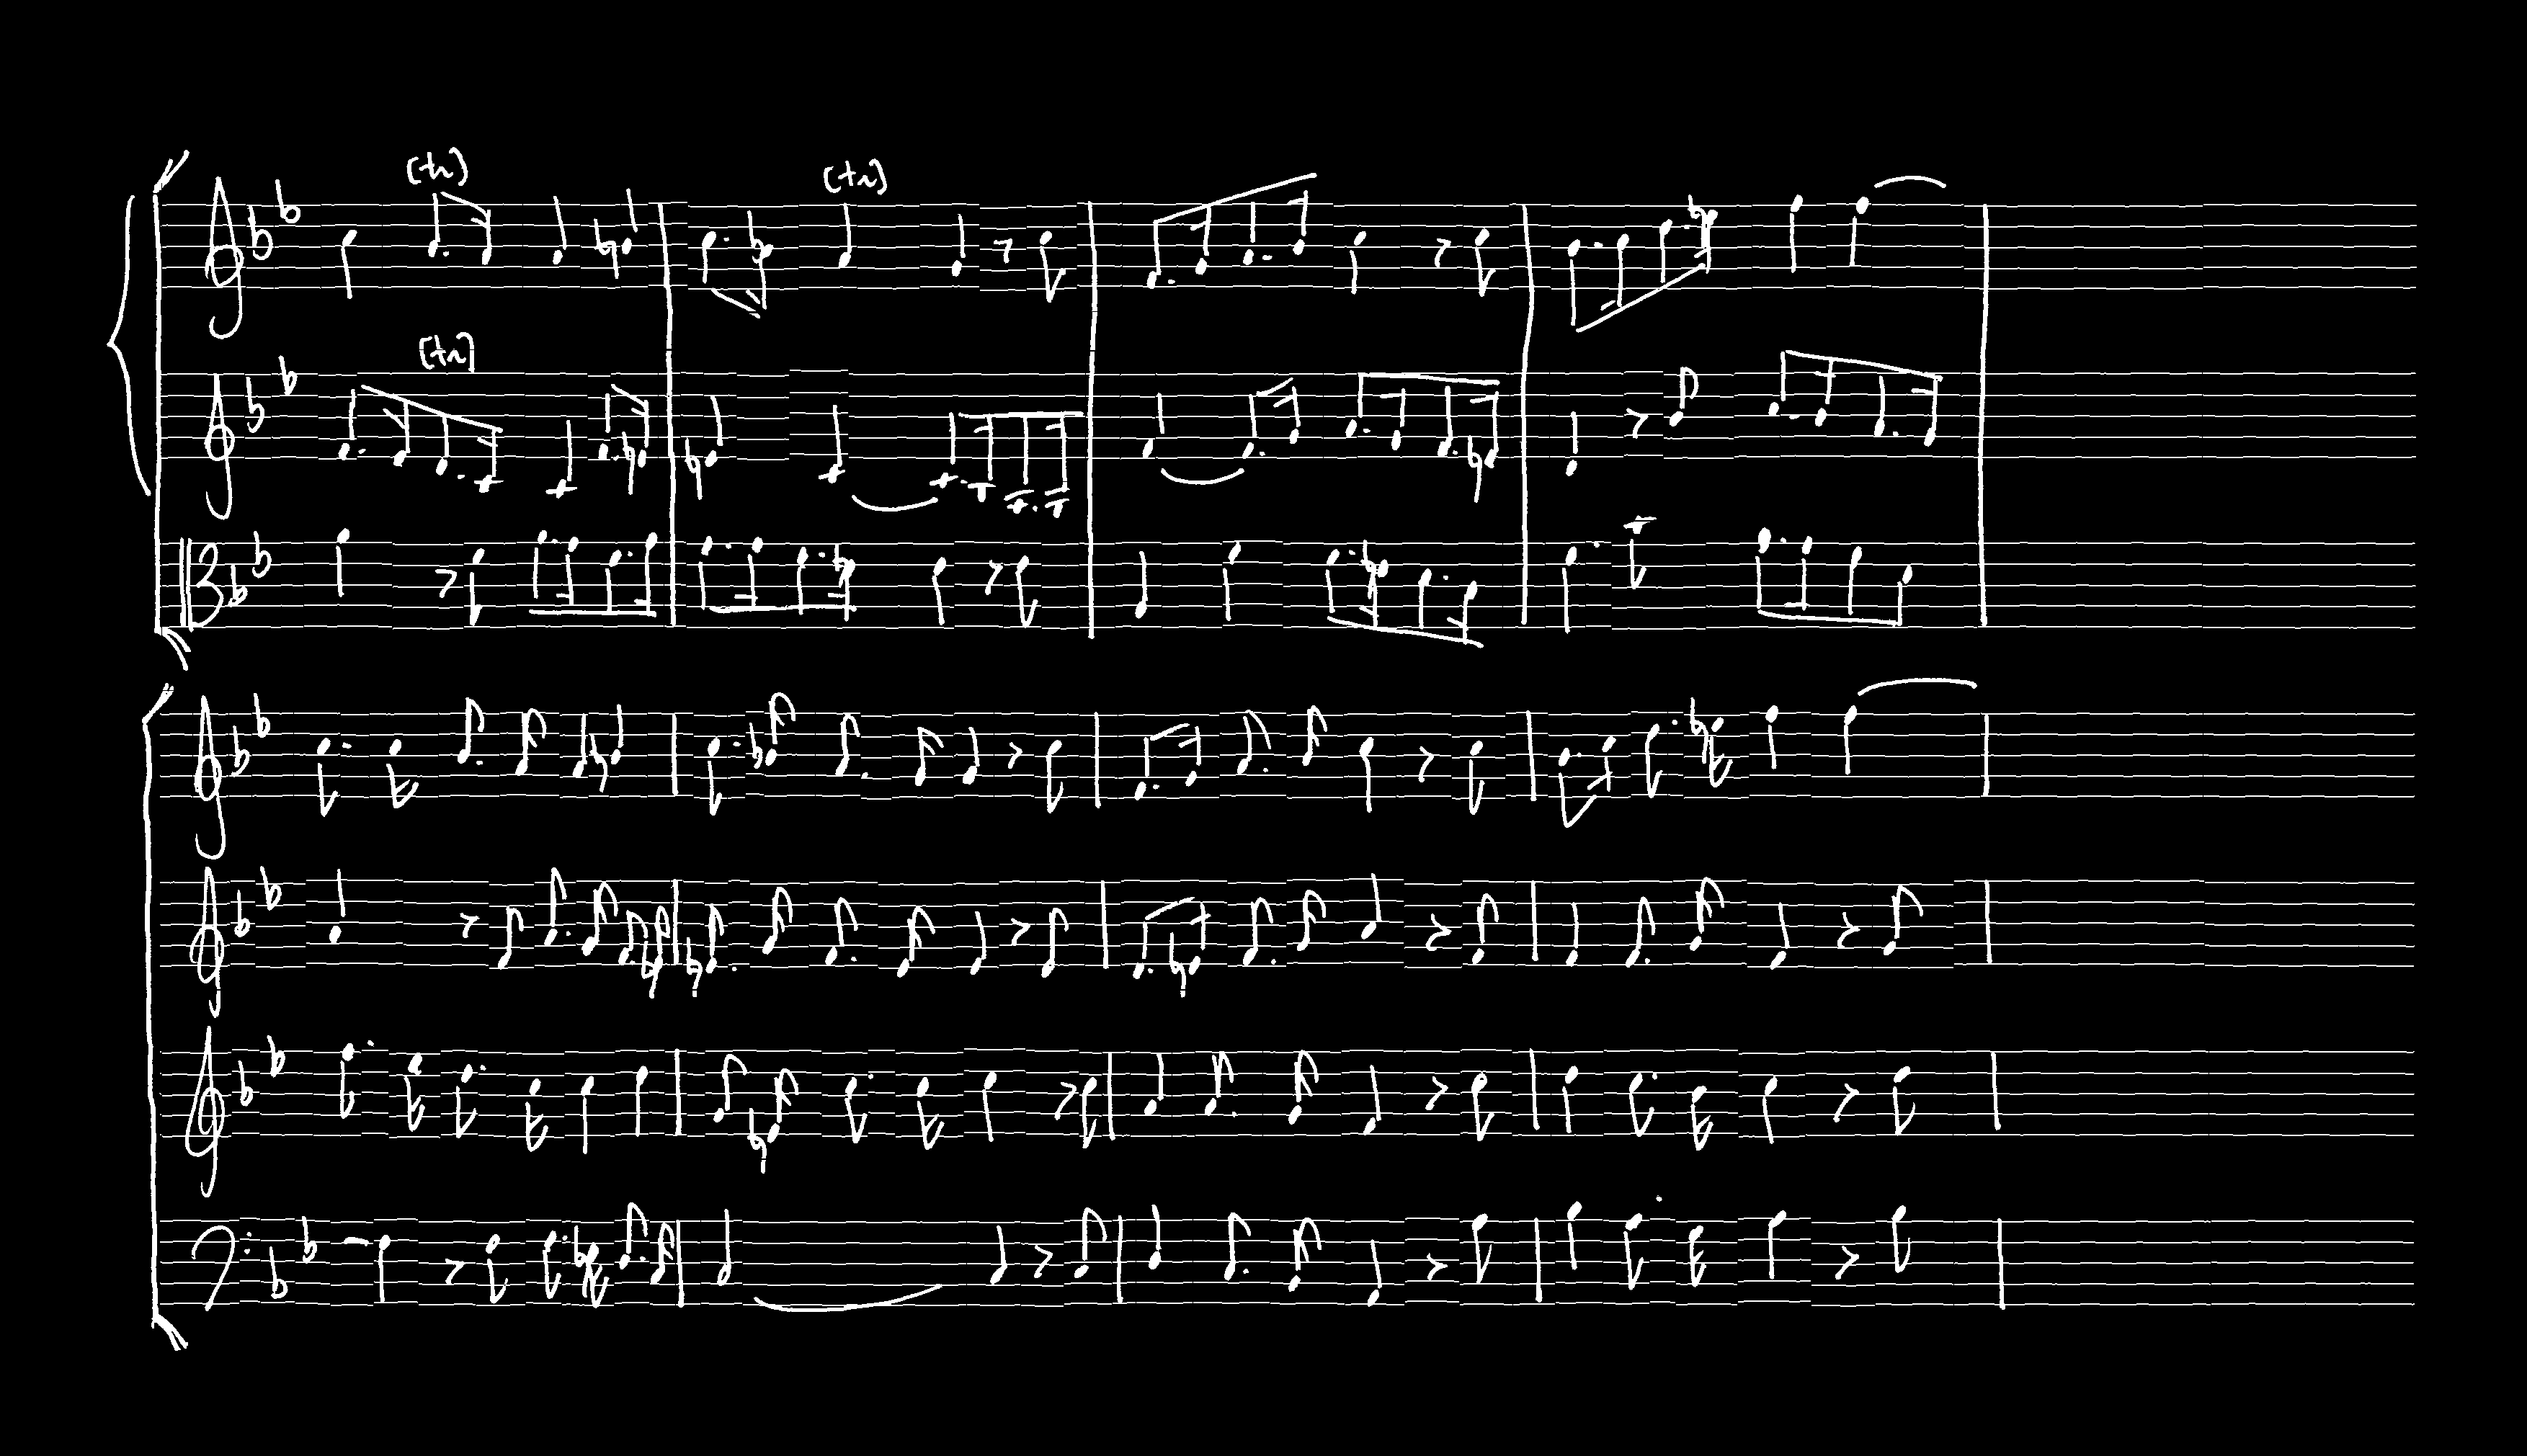 (tr)
(tr)
[tr]